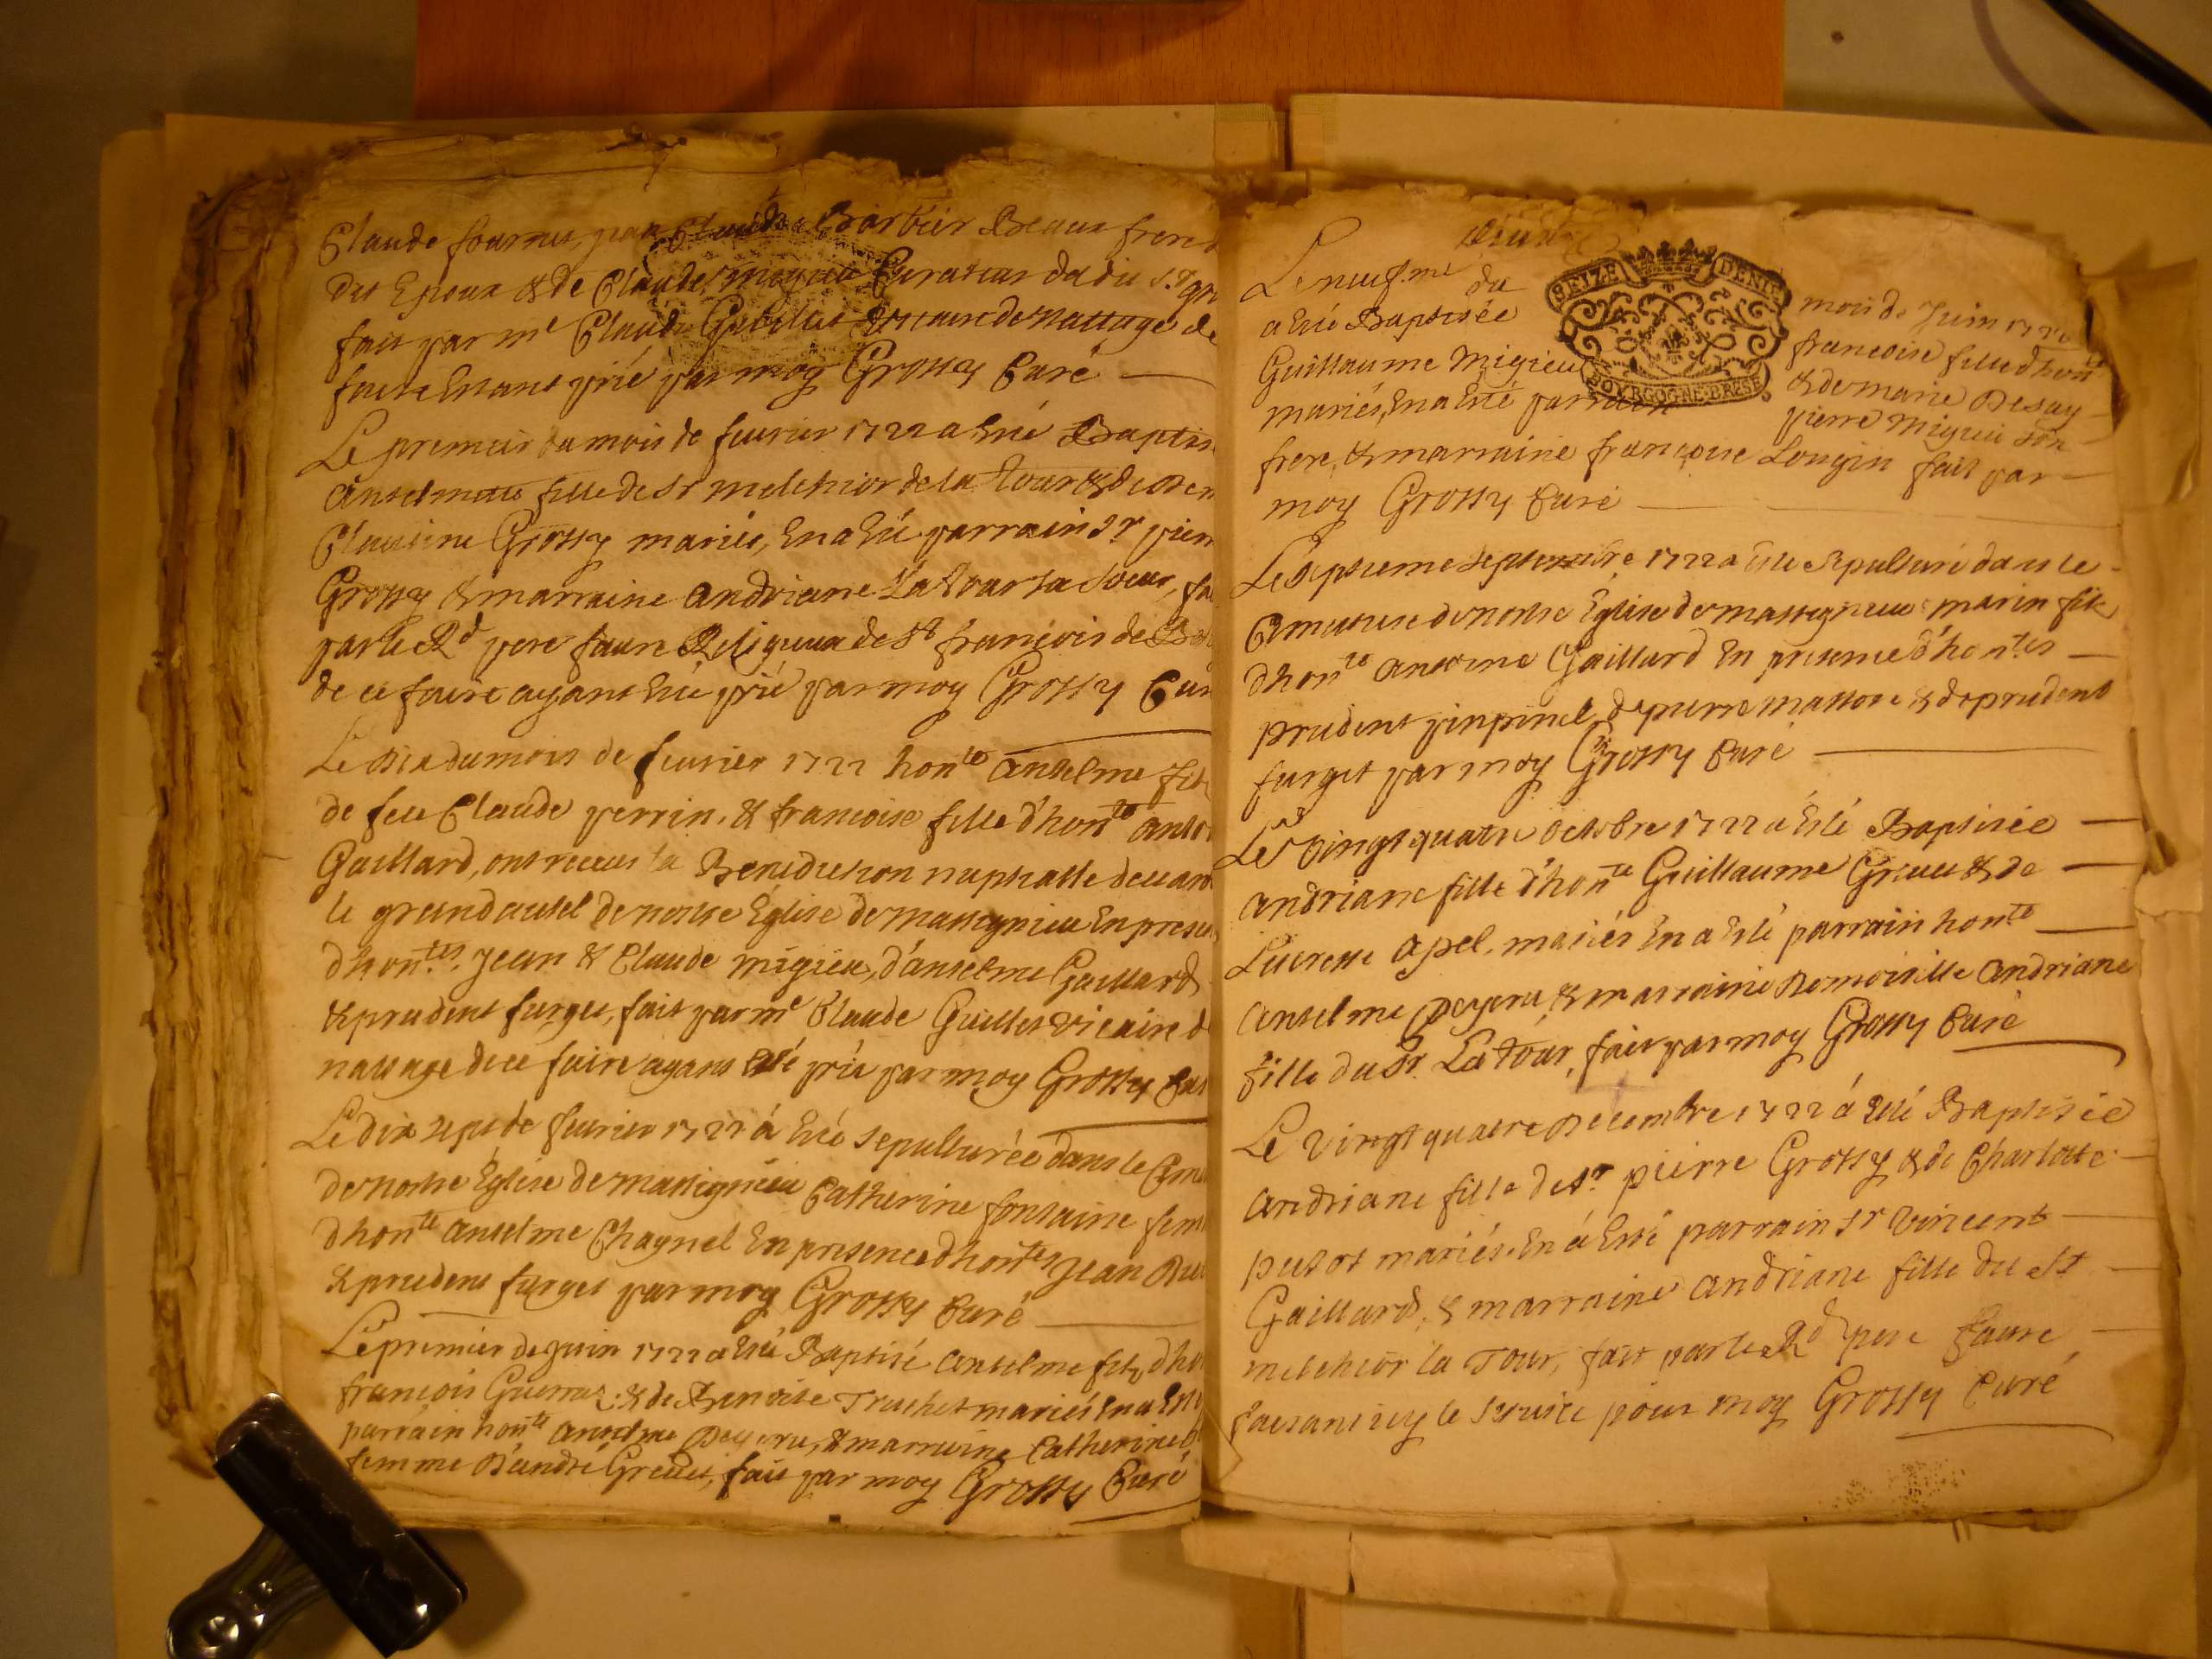 Claude fournet, par Claude Barbier Beaux frere
des Epoux & de Claude Curateur dudit Sr
fait par me Claude vicaire de Nattage de
faire estant prié par moy Grossy Curé
Le premier du mois de feuvrier 1722 a esté Baptis
Anselmette fille de Sr Melchior de la Tour & de
Claudine Grossy mariés, En a esté parrain Sr pierr
Grossy & marraine Andriane La Tour sa soeur, fa
par le Rd pere faure Religieux de St françois de
de ce faire ayant esté prié par moy Grossy Cur
Le dix du mois de feuvrier 1722 honte Anselme fils
de feu Claude perrin, & françoise fille d'honte Anto
Gaillard, ont receus la Benediction nuptialle devant
le grand autel de nostre Eglise de massignieu En presen
d'hontes Jean & Claude migieu, d'anselme Gaillard
& prudent furget, fait par me Claude Guillet vicaire d
nattage de ce faire ayant esté prié par moy Grossy Cur
Le dix sept de feuvrier 1722 à esté sepulturée dans le Cime
de nostre Eglise de massignieu Catherine fontaine fem
d'honte Anselme Chaynel En presence d'hontes Jean
& prudent furget par moy Grossy Curé
Le premier de juin 1722 a esté Baptisé Anselme fils d'ho
françois & de Benoite Truchet mariés En a esté
parrain honte Anselme & marraine Catherine
femme d'André Greuet, fait par moy Grossy Curé
Le neufme du mois de Juin 172
a esté Baptisée françoise fille d'honte
Guillaume Migieu & de marie Desay
mariés, En a esté parrain pierre Migieu son
frere, & marraine françoise Longin fait par
moy Grossy Curé
SEIZE DENIE
BOVRGOGNE·BRESE
Le septieme septembre 1722 a esté sepulturé dans le
Cimetiere de nostre Eglise de massignieu marin fils
d'honte Antoine Gaillard En presence d'hontes
prudent pinpinel, de pierre Masson & de prudent
furget par moy Grossy Curé
Le vingt quatre octobre 1722 a esté Baptisée
Andriane fille d'honte Guillaume Greuet & de
Lucresse Apel, mariés En a esté parrain honte
Anselme & marraine Demoiselle Andriane
fille du Sr La Tour, fait par moy Grossy Curé
Le vingt quatre Decembre 1722 à esté Baptisée
Andriane fille de Sr pierre Grossy & de Charlotte
putot mariés. En à esté parrain Sr Vincent
Gaillard, & marraine Andriane fille du Sr
melchior la Tour, fait par le Rd pere faure
faisant icy le service pour moy Grossy Curé